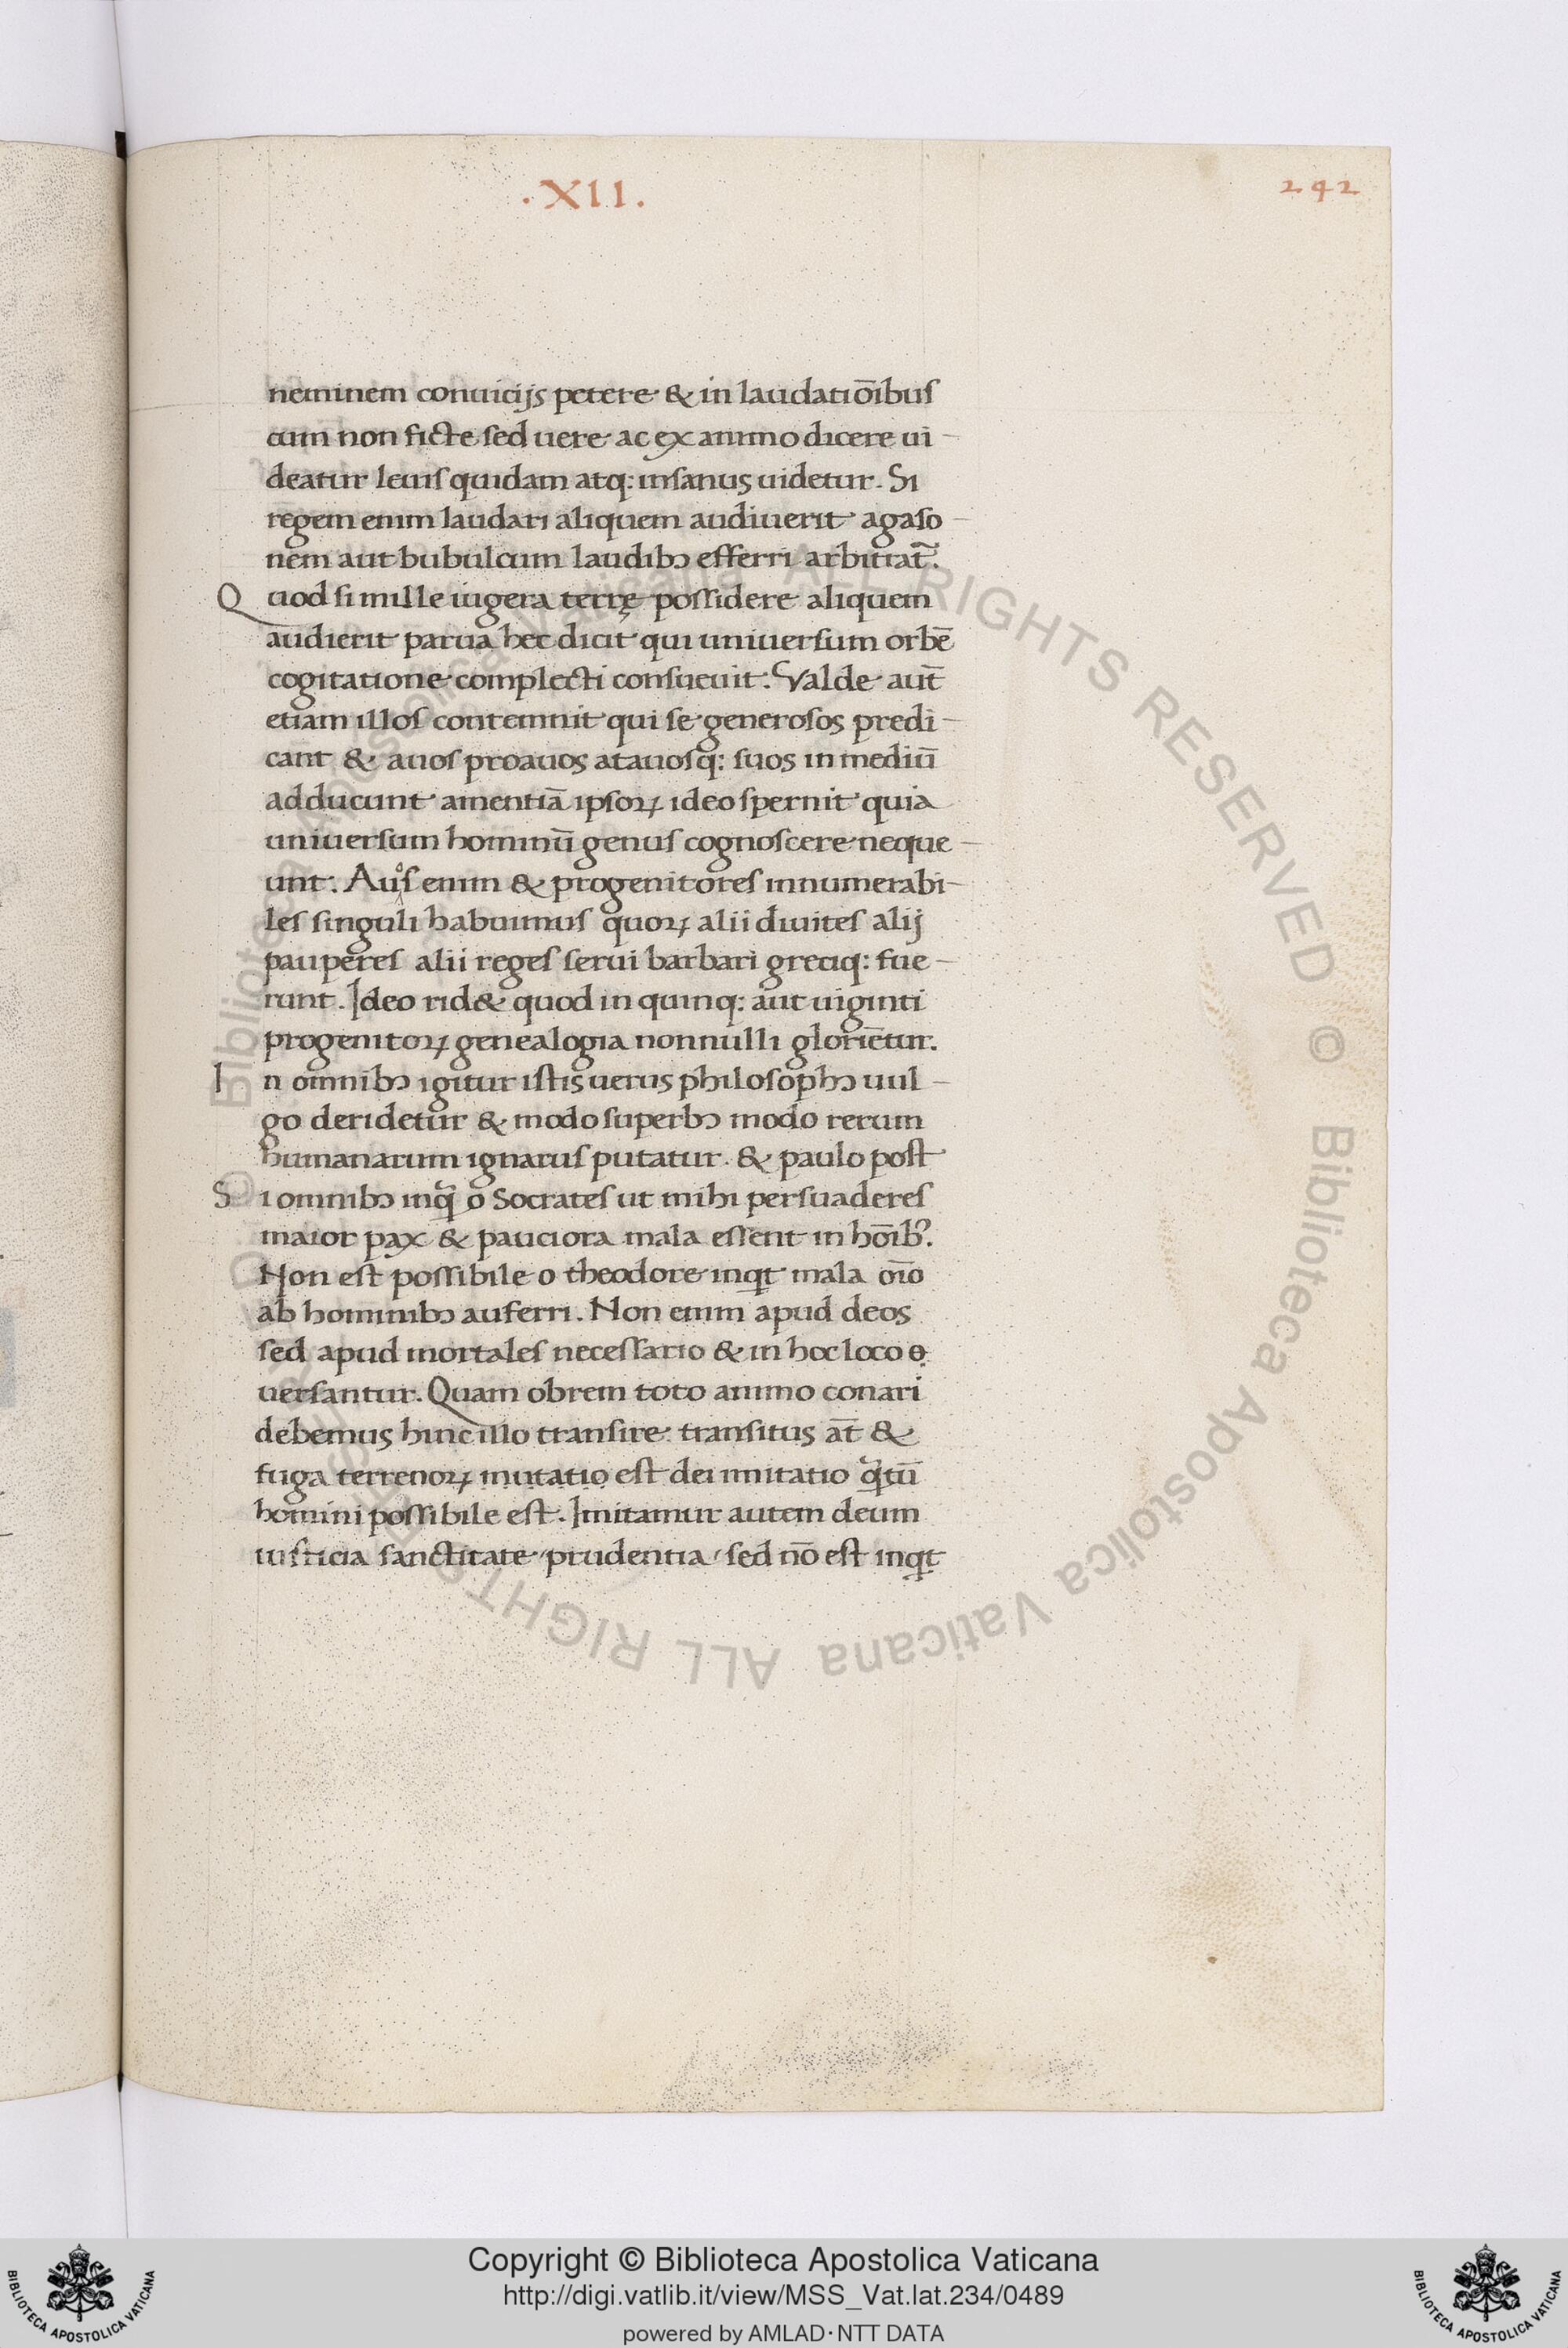 .XII.
242
neminem conuicijs petere & in laudatiōibus
cum non ficte sed uere ac ex animo dicere ui-
deatur leuis quidam atq: insanus uidetur. Si
regem enim laudari aliquem audiuerit agaso-
nem aut bubulcum laudibꝯ efferri arbitrat̃.
Quod si mille iugera terrę possidere aliquem
audierit parua hec dicit qui uniuersum orbē
cogitatione complecti consueuit: Valde aut̄
etiam illos contemnit qui se generosos predi-
cant & auos proauos atauosq: suos in mediū
adducunt amentiā ipsoꝝ ideo spernit quia
uniuersum hominū genus cognoscere neque-
unt. Auos enim & progenitores innumerabi-
les singuli habuimus quoꝝ alii diuites alij
pauperes alii reges serui barbari greciq: fue-
runt. Ideo rid& quod in quinq: aut uiginti
progenitoꝝ genealogia nonnulli gloriētur.
In omnibꝯ igitur istis uerus philosophꝯ uul-
go deridetur & modo superbꝯ modo rerum
humanarum ignarus putatur. & paulo post
Si omnibꝯ inq̃ o Socrates ut mihi persuaderes
maior pax & pauciora mala essent in hōib⁹.
Non est possibile o theodore inqt mala oīo
ab hominibꝯ auferri. Non enim apud deos
sed apud mortales necessario & in hoc loco o
uersantur. Quam obrem toto animo conari
debemus hinc illo transire: transitus at̄ &
fuga terrenoꝝ mutatio est dei imitatio q̃tū
homini possibile est. Imitamur autem deum
iusticia sanctitate prudentia sed nō est inqt
Copyright © Biblioteca Apostolica Vaticana
http://digi.vatlib.it/view/MSS_Vat.lat.234/0489
powered by AMLAD·NTT DATA
BIBLIOTECA APOSTOLICA VATICANA
BIBLIOTECA APOSTOLICA VATICANA
© Biblioteca Apostolica Vaticana ALL RIGHTS RESERVED © Biblioteca Apostolica Vaticana ALL RIGHTS RESERVED